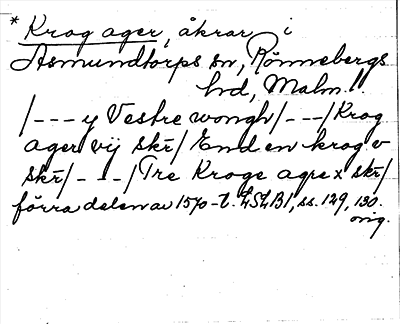 * Krog ager, åkrar i
Asmundtorps sn, Rönnebergs
hd, Malm. l.
/---y Vestre wongh/---/Krog
ager vij skr̄/ End en krog v
skr̄/---/Tre Kroge agre x skr̄/
förra delen av 1570-t. LSLB1, ss. 129, 130.
orig.